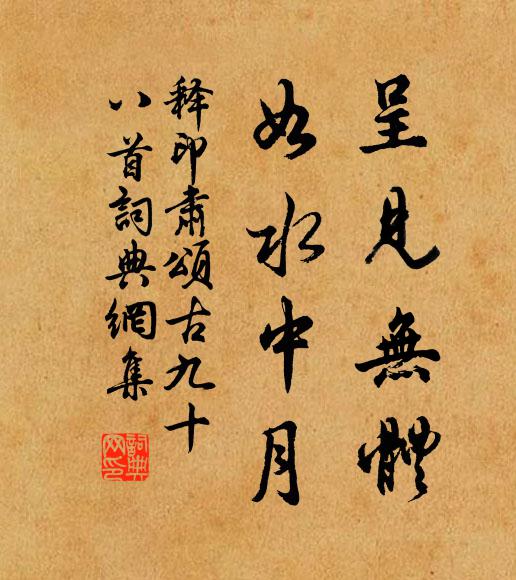 呈見無體
如水中月
釋印肅頌古九十
八首詞典網集
詞典网印